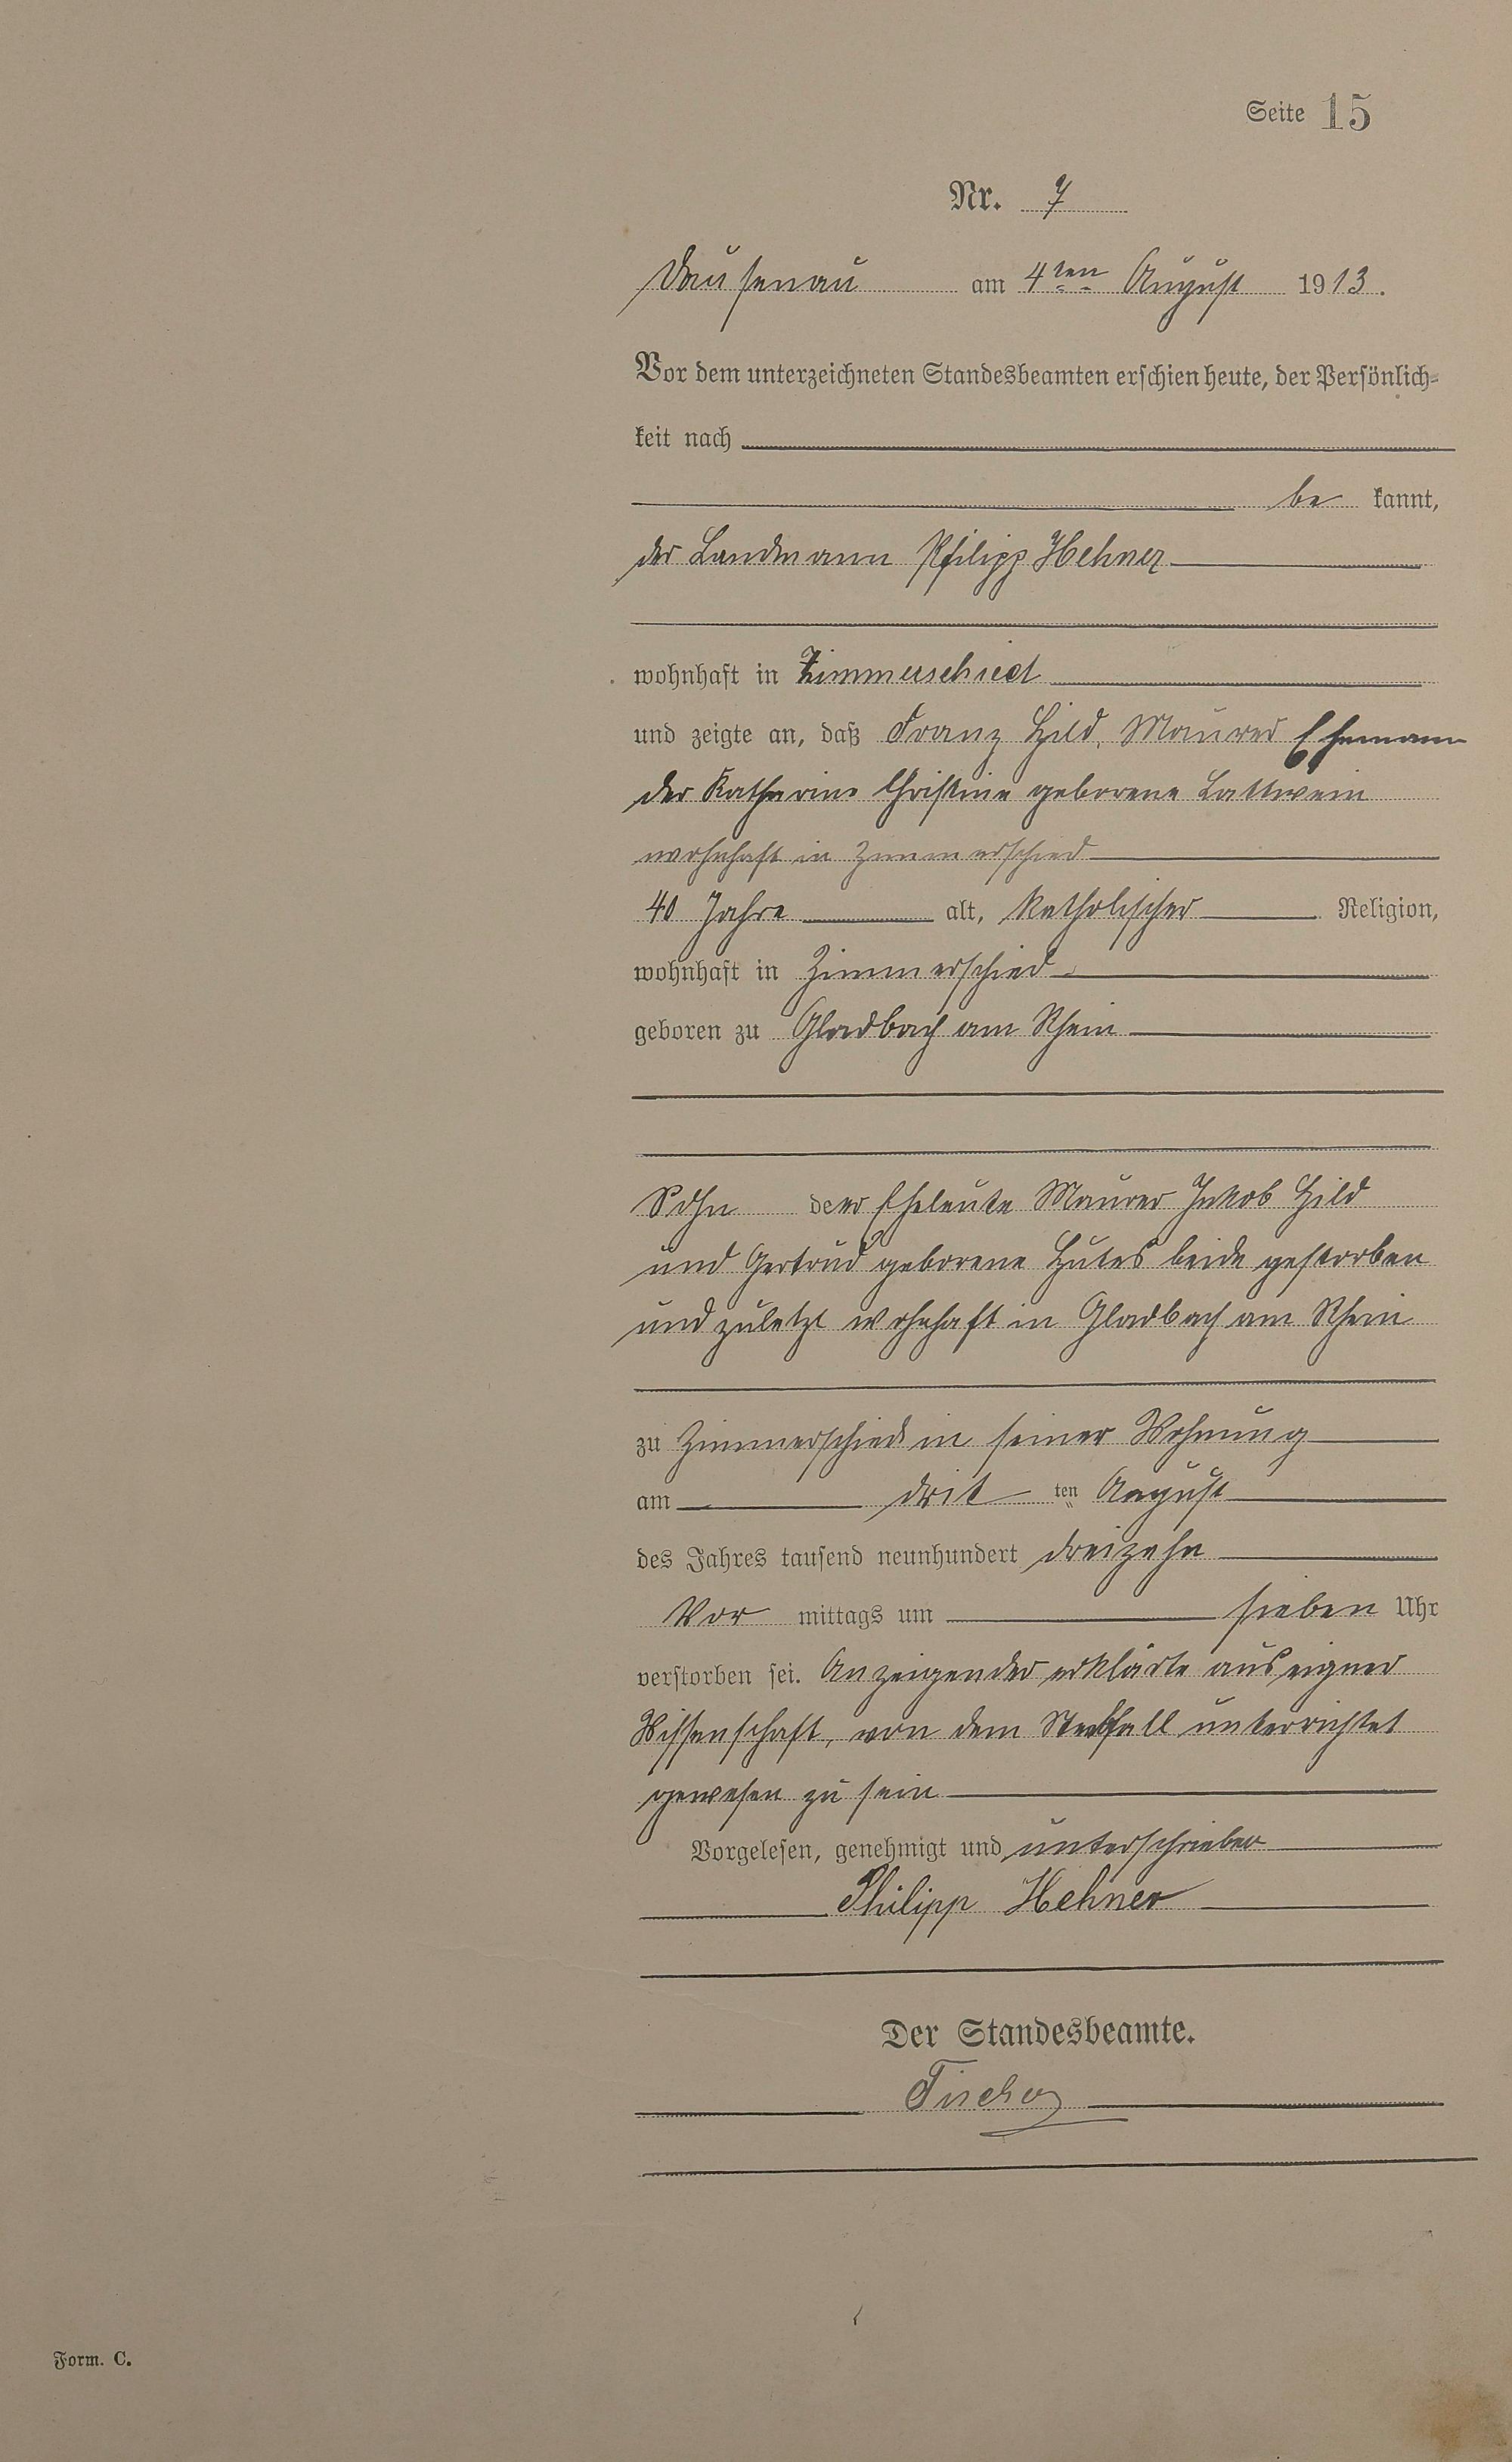 Seite 15
Nr. 7
Dausenau am 4ten August 1913.
Vor dem unterzeichneten Standesbeamten erschien heute, der Persönlich-
keit nach
be kannt,
der Landmann Philipp Hehner
wohnhaft in Zimmerschied
und zeigte an, daß Franz Hild, Maurer Ehemann
der Katharina Christine geborene Lattwein
wohnhaft in Zimmerschied
40 Jahre alt, katholischer Religion,
wohnhaft in Zimmerschied
geboren zu Gladbach am Rhein
Sohn der Eheleute Maurer Jakob Hild
und Gertrud geborene beide gestorben
und zuletzt wohnhaft in Gladbach am Rhein
zu Zimmerschied in seiner Wohnung
am drit ten August
des Jahres tausend neunhundert dreizehn
Vor mittags um sieben Uhr
verstorben sei. Anzeigender erklärte aus eigner
Wissenschaft, von dem Sterbfall unterrichtet
gewesen zu sein
Vorgelesen, genehmigt und unterschrieben
Philipp Hehner
Der Standesbeamte.
Fischer
Form. C.